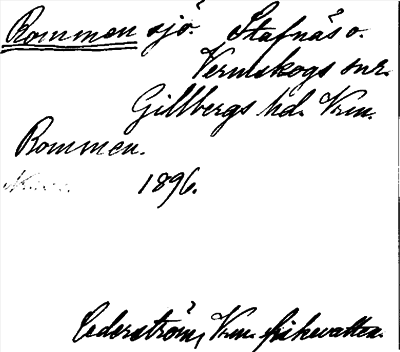 Rommen sjö. Stafnäs o.
Vermskogs snr.
Gillbergs hd. Vrm.
Rommen.
1896.
Cederström, Vrm. fiskevatten.